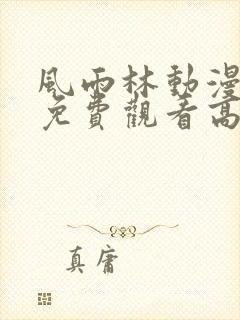 風雨林動漫
免費觀看高
真庸